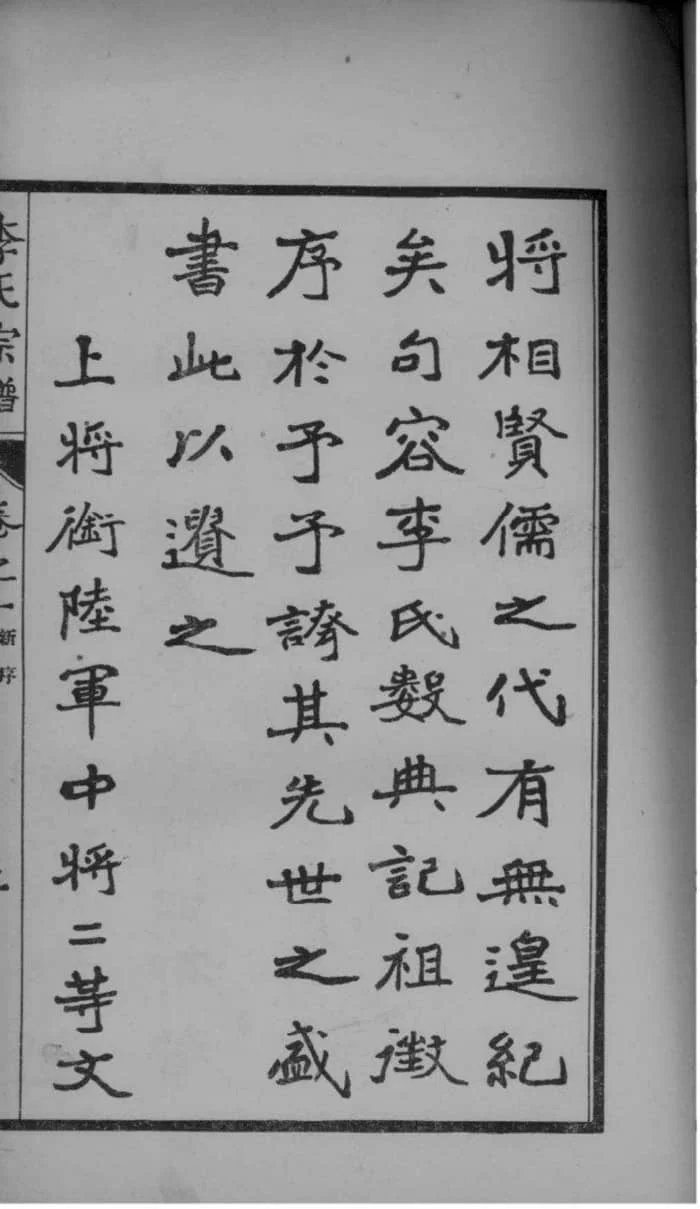 將相賢儒之代有無遑紀
矣句容李氏數典記祖徵
序於予予誇其先世之盛
書此以遺之
上將銜陸軍中將二等文
李氏宗譜
卷之一
新序